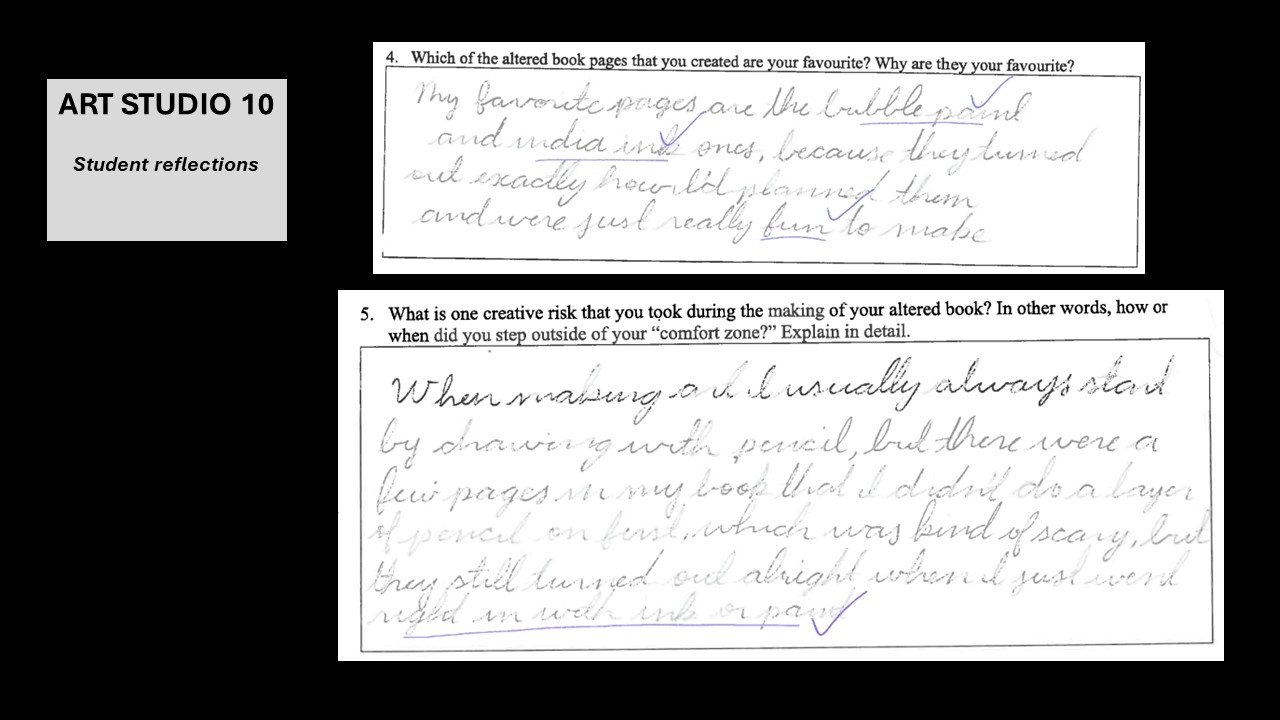 ART STUDIO 10
Student reflections
4. Which of the altered book pages that you created are your favourite? Why are they your favourite?
My favorite pages are the bubble paint
and india ink ones, because they turned
out exactly how I'd planned them
and were just really fun to make
5. What is one creative risk that you took during the making of your altered book? In other words, how or
when did you step outside of your “comfort zone?” Explain in detail.
When making art I usually always start
by drawing with pencil, but there were a
few pages in my book that I didn't do a layer
of pencil on first, which was kind of scary, but
they still turned out alright when I just went
right in with ink or paint